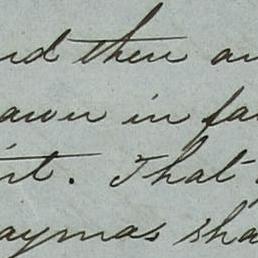 nd then an
awn in fa
nt. That
aymas sha